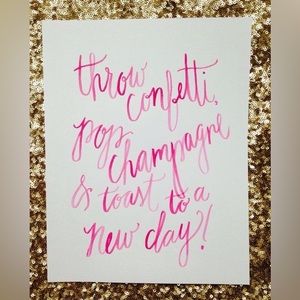 throw
confetti,
pop
champagne
& toast to a
new day!